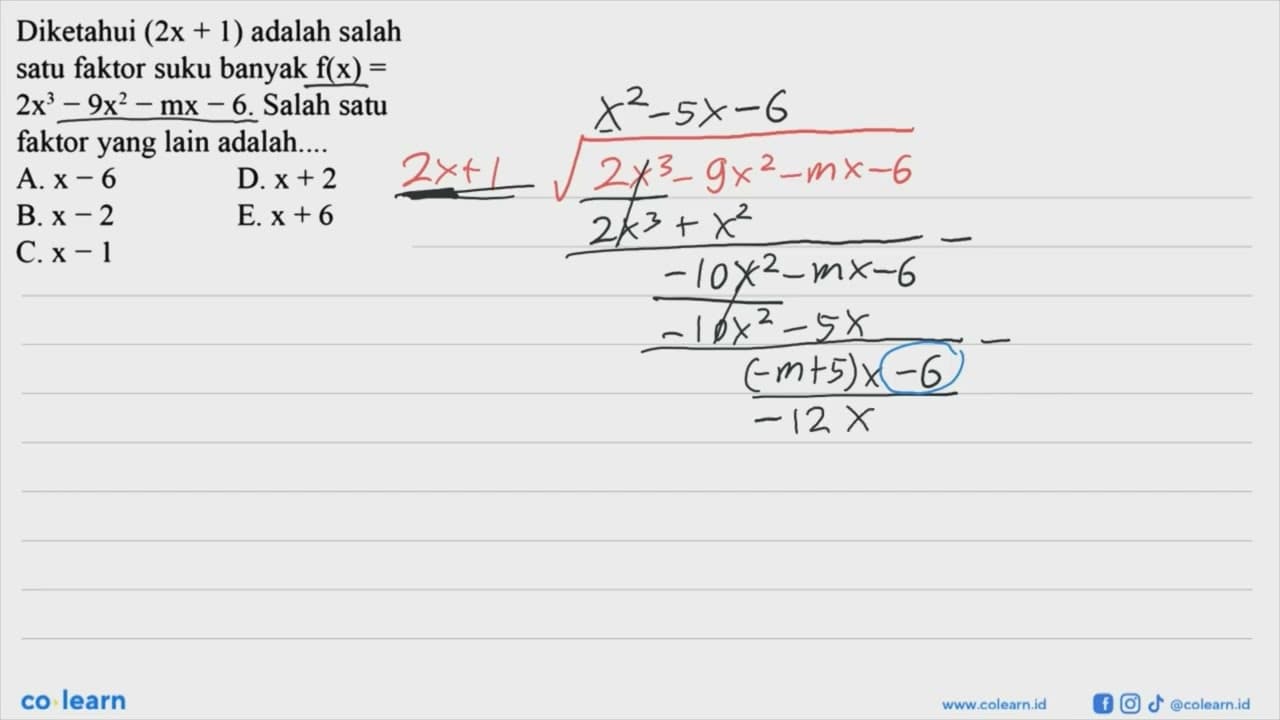 Diketahui (2x + 1) adalah salah
satu faktor suku banyak f(x) =
2x³ − 9x² − mx − 6. Salah satu
faktor yang lain adalah....
A. x − 6 D. x + 2
B. x − 2 E. x + 6
C. x − 1
x² − 5x − 6
2x+1 √ 2x³ − 9x² − mx − 6
2x³ + x² −
−10x² − mx − 6
−10x² − 5x −
(−m+5)x −6
−12x
co learn
www.colearn.id @colearn.id